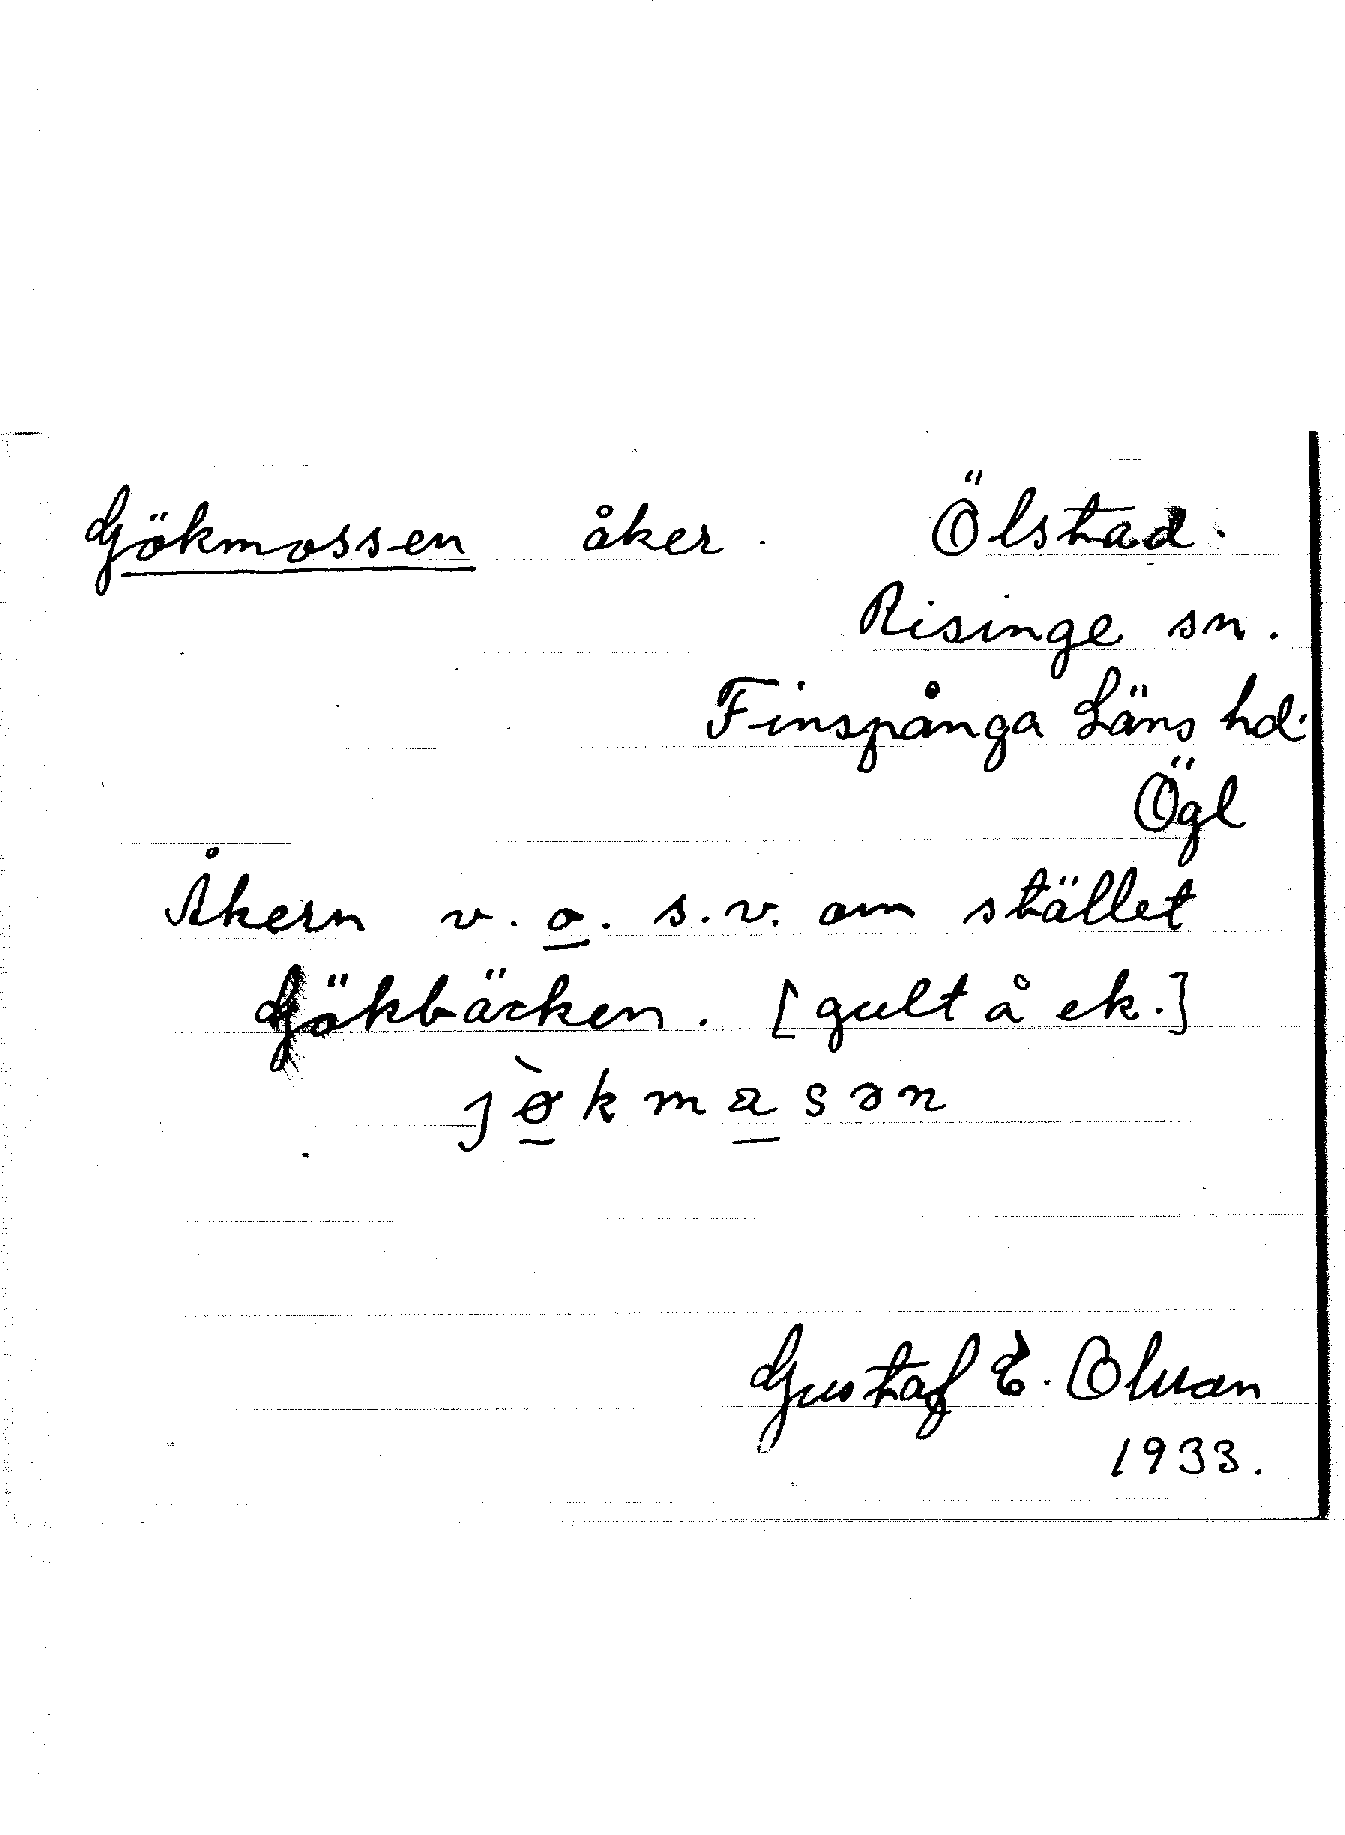 Gökmossen åker. Ölstad.
Risinge sn.
Finspånga Läns hd.
Ögl
Åkern v. o. s.v. om stället
Gökbäcken. [gult å ek.]
jø̀kmasən
Gustaf E. Olsson
1933.